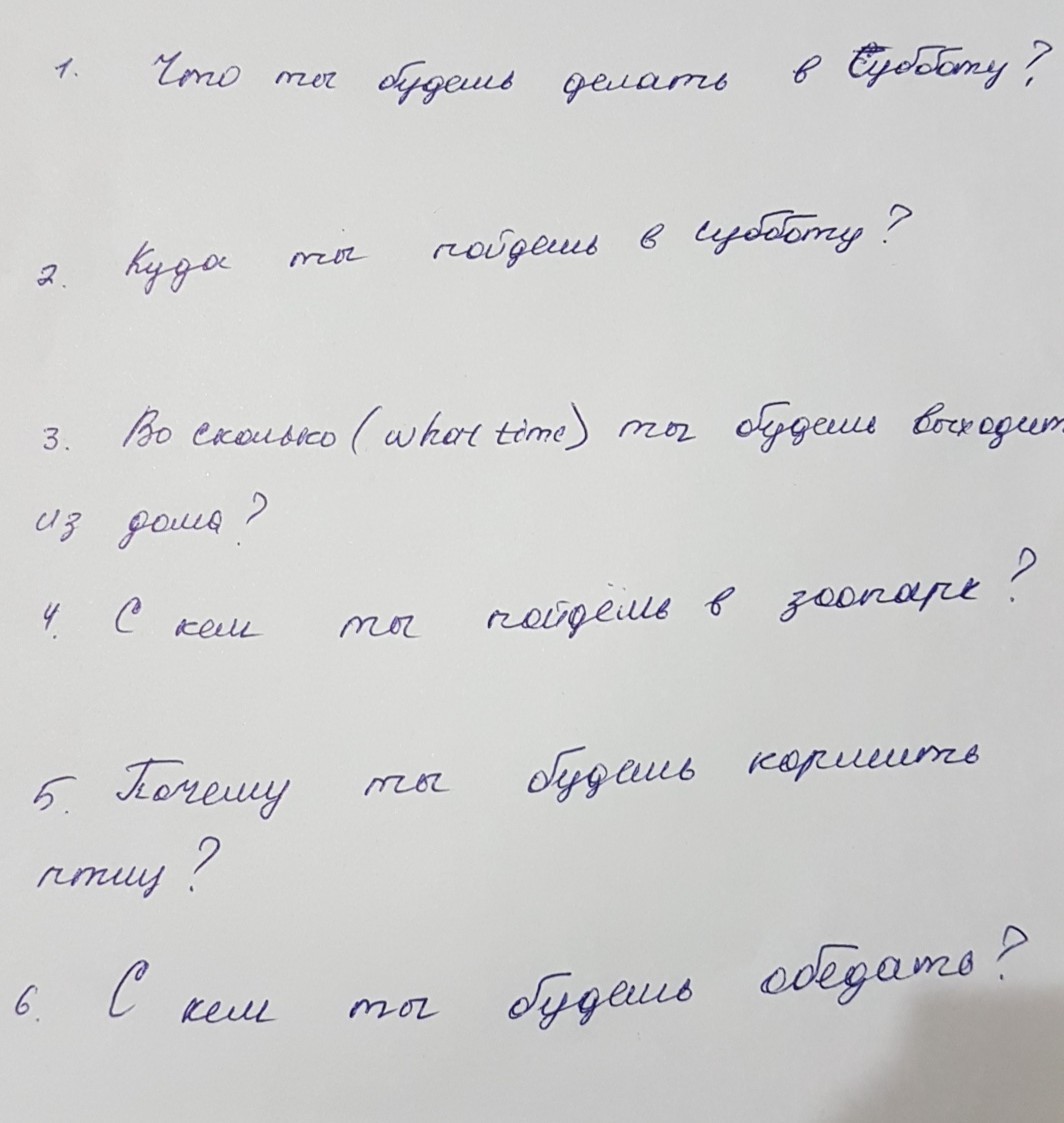 1. Что ты будешь делать в Субботу?
2. Куда ты пойдешь в субботу?
3. Во сколько (what time) ты будешь выходит
из дома?
4. С кем ты пойдёшь в зоопарк?
5. Почему ты будешь кормить
птиц?
6. С кем ты будешь обедать?